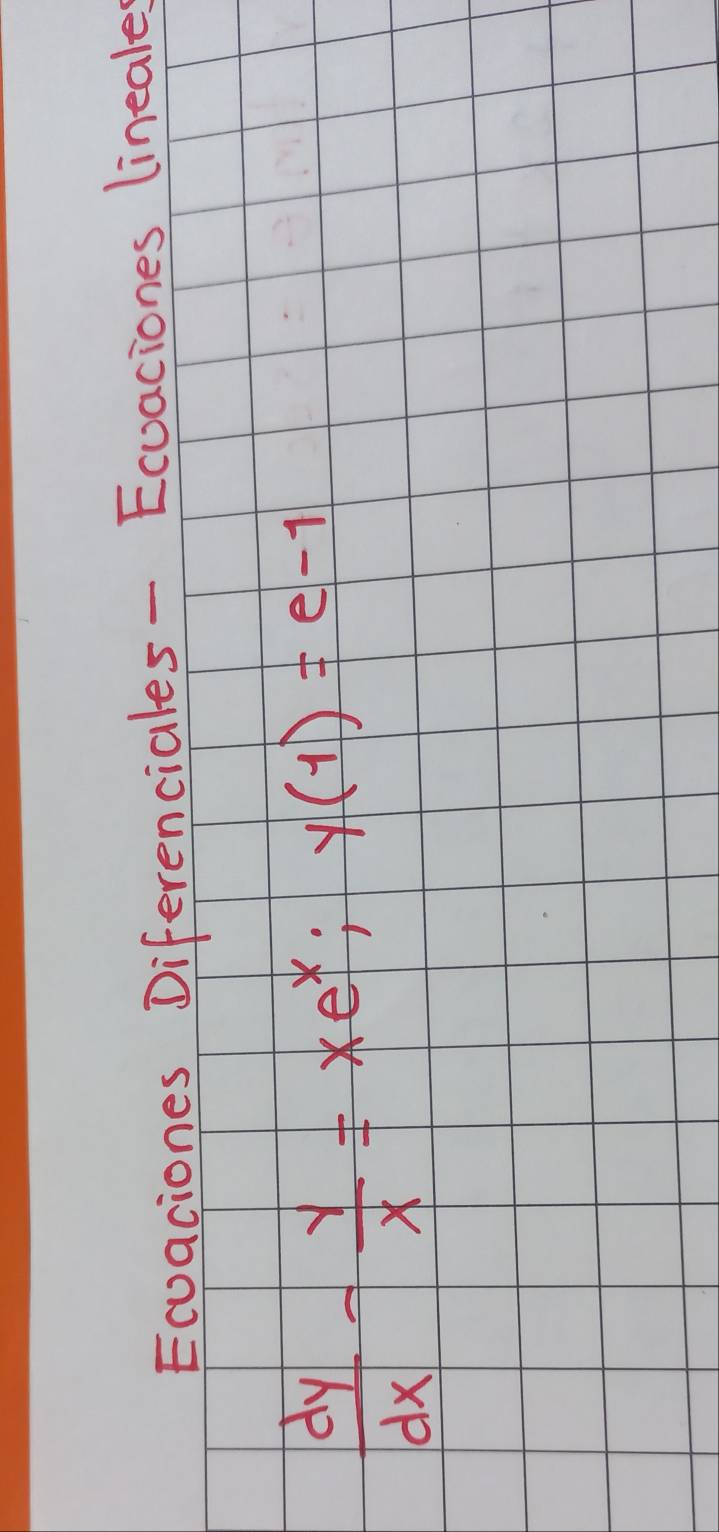 Ecuaciones Diferenciales - Ecuaciones lineales
dy/dx - y/x = xeˣ; y(1) = e-1